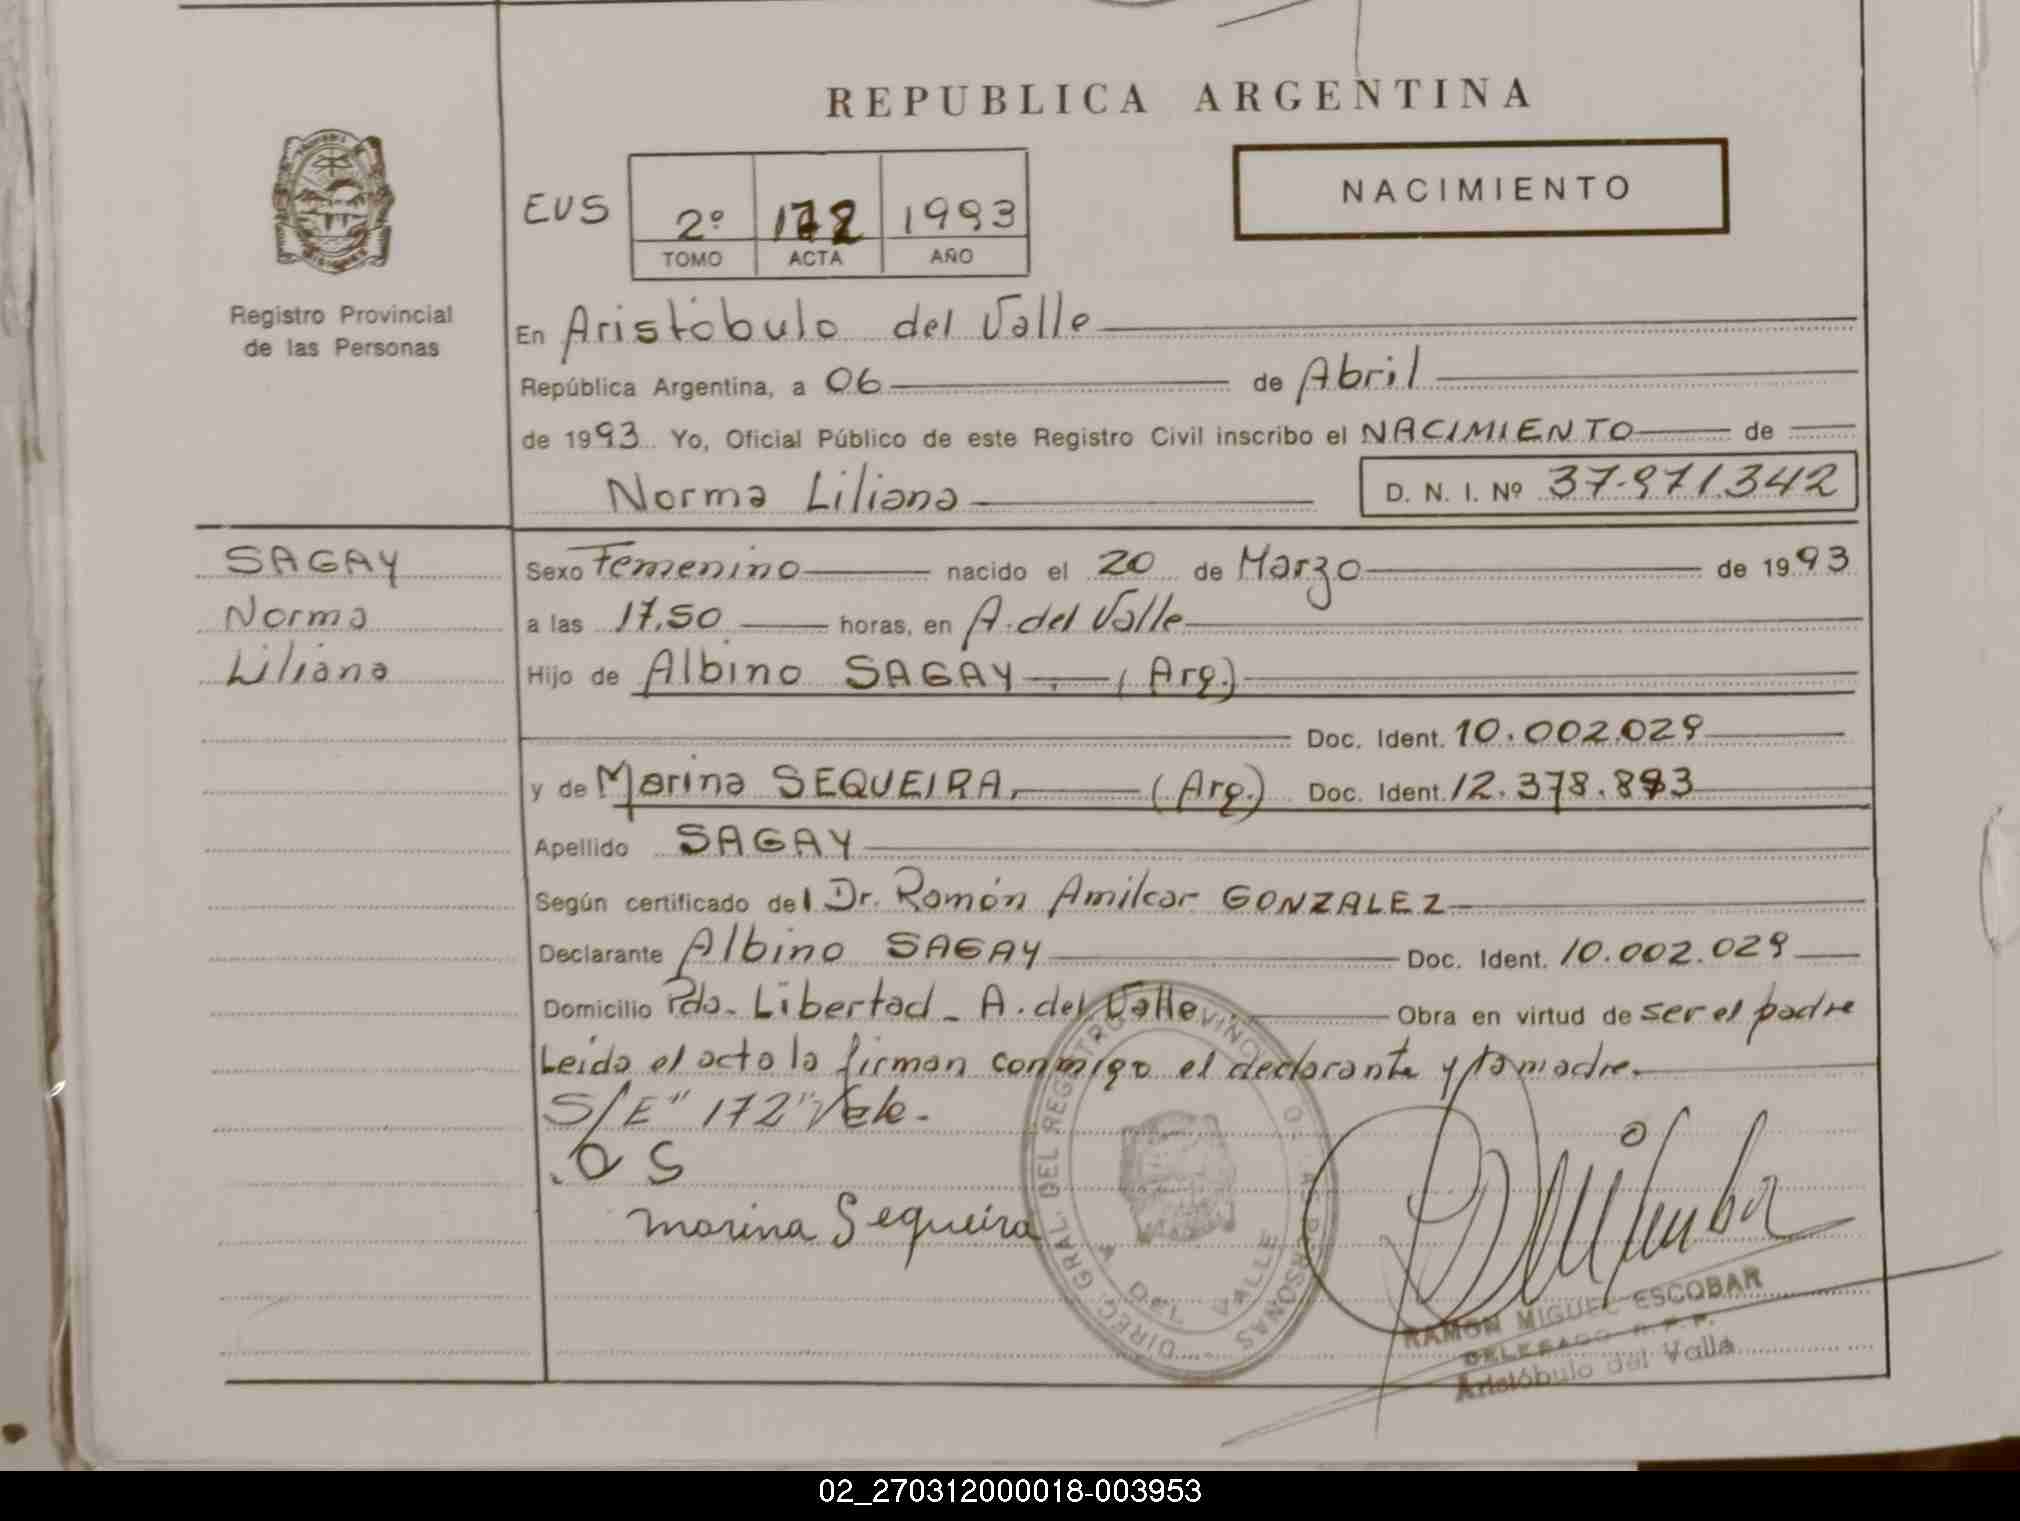 REPUBLICA ARGENTINA
NACIMIENTO
EUS
2º 172 1993
TOMO ACTA AÑO
Registro Provincial
de las Personas
En Aristóbulo del Valle
República Argentina, a 06 de Abril
de 1993. Yo, Oficial Público de este Registro Civil inscribo el NACIMIENTO de
Norma Liliana D. N. I. Nº 37.971.342
SAGAY
Norma
Liliana
Sexo Femenino nacido el 20 de Marzo de 1993
a las 17,50 horas, en A. del Valle
Hijo de Albino SAGAY (Arg.)
Doc. Ident. 10.002.029
y de Marina SEQUEIRA, (Arg.) Doc. Ident. 12.378.893
Apellido SAGAY
Según certificado del Dr. Ramón Amilcar GONZALEZ
Declarante Albino SAGAY Doc. Ident. 10.002.029
Domicilio Pdo. Libertad - A. del Valle Obra en virtud de ser el padre
Leída el acta la firman conmigo el declarante y la madre.
S/E "172" Vale.
. a S
Marina Sequeira
DIREC. GRAL. DEL REGISTRO PERSONAS
DEL VALLE
RAMON MIGUEL ESCOBAR
DELEGADO R.P.P.
Aristóbulo del Valle
02_270312000018-003953